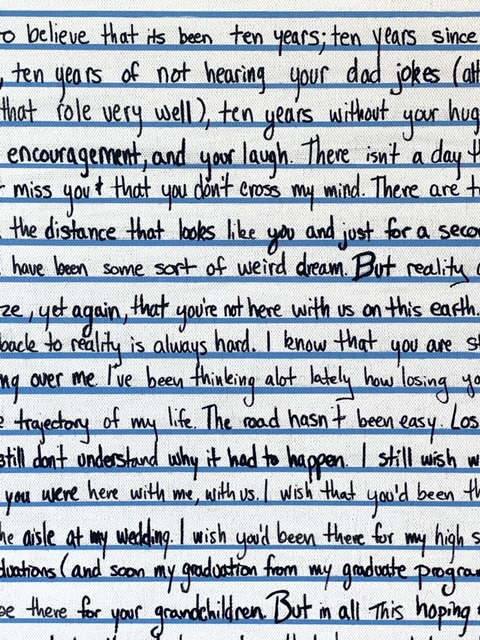 to believe that its been ten years; ten years since
, ten years of not hearing your dad jokes (alt
that role very well), ten years without your hug
encouragement, and your laugh. There isn't a day t
miss you & that you don't cross my mind. There are t
the distance that looks like you and just for a seco
have been some sort of weird dream. But reality
ze, yet again, that you're not here with us on this earth.
back to reality is always hard. I know that you are s
ng over me. I've been thinking alot lately how losing yo
e trajectory of my life. The road hasn't been easy. Los
still dont understand why it had to happen. I still wish w
you were here with me, with us. I wish that you'd been th
he aisle at my wedding. I wish you'd been there for my high s
duations (and soon my graduation from my graduate program
be there for your grandchildren. But in all This hoping